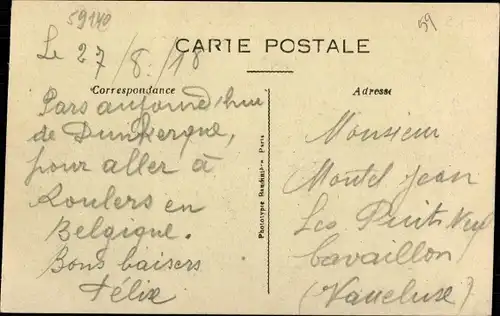 59140
59
Le 27/8/18
CARTE POSTALE
Correspondance
Adresse
Pars aujourd'hui
de Dunkerque,
pour aller à
Roulers en
Belgique.
Bons baisers
Félix
Phototypie Baudinière Paris
Monsieur
Montel Jean
Les Puits Neufs
Cavaillon
(Vaucluse)